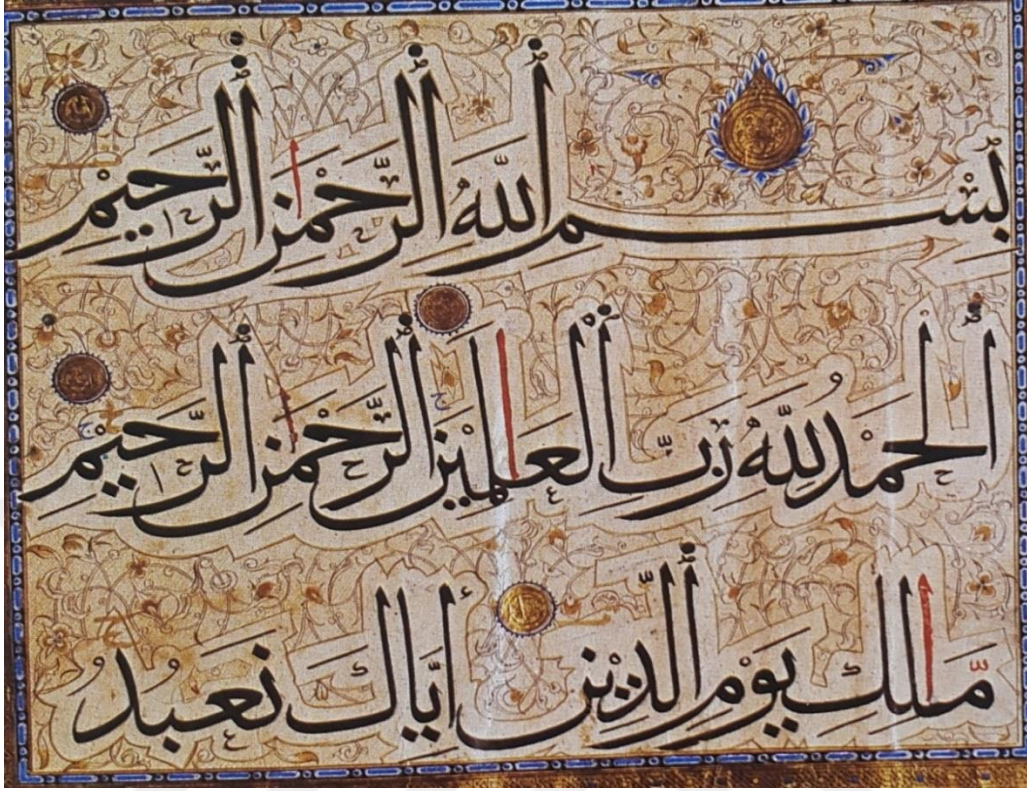 بِسْمِ اللَّهِ الرَّحْمٰنِ الرَّحِيْمِ
اَلْحَمْدُ لِلَّهِ رَبِّ الْعٰلَمِيْنَ الرَّحْمٰنِ الرَّحِيْمِ
مٰلِكِ يَوْمِ الدِّيْنِ اِيَّاكَ نَعْبُدُ